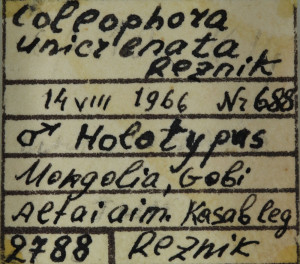 Coleophora
unicrenata
Reznik
14 VIII 1966 Nr 688
♂ Holotypus
Mongolia, Gobi
Altai aim. Kasab leg
2788 Reznik